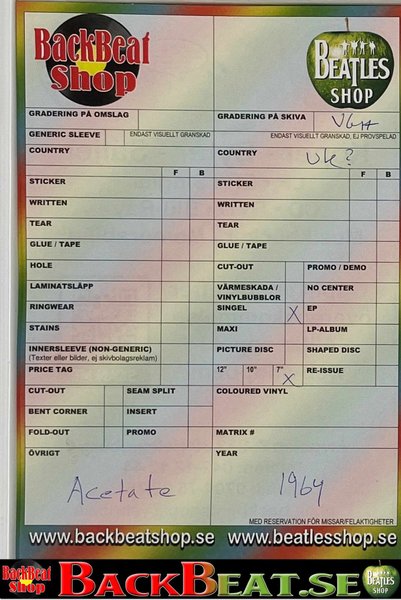 BackBeat Shop
BEATLES SHOP
GRADERING PÅ OMSLAG
GRADERING PÅ SKIVA VG++
GENERIC SLEEVE ENDAST VISUELLT GRANSKAD
ENDAST VISUELLT GRANSKAD, EJ PROVSPELAD
COUNTRY
COUNTRY UK?
F B
F B
STICKER
STICKER
WRITTEN
WRITTEN
TEAR
TEAR
GLUE / TAPE
GLUE / TAPE
HOLE
CUT-OUT PROMO / DEMO
LAMINATSLÄPP
VÄRMESKADA / VINYLBUBBLOR NO CENTER
RINGWEAR
SINGEL X EP
STAINS
MAXI LP-ALBUM
INNERSLEEVE (NON-GENERIC)
(Texter eller bilder, ej skivbolagsreklam)
PICTURE DISC SHAPED DISC
PRICE TAG
12" 10" 7" X RE-ISSUE
CUT-OUT SEAM SPLIT
COLOURED VINYL
BENT CORNER INSERT
FOLD-OUT PROMO
MATRIX #
ÖVRIGT
YEAR
Acetate
1964
MED RESERVATION FÖR MISSAR/FELAKTIGHETER
www.backbeatshop.se www.beatlesshop.se
BackBeat Shop BACKBEAT.SE BEATLES SHOP